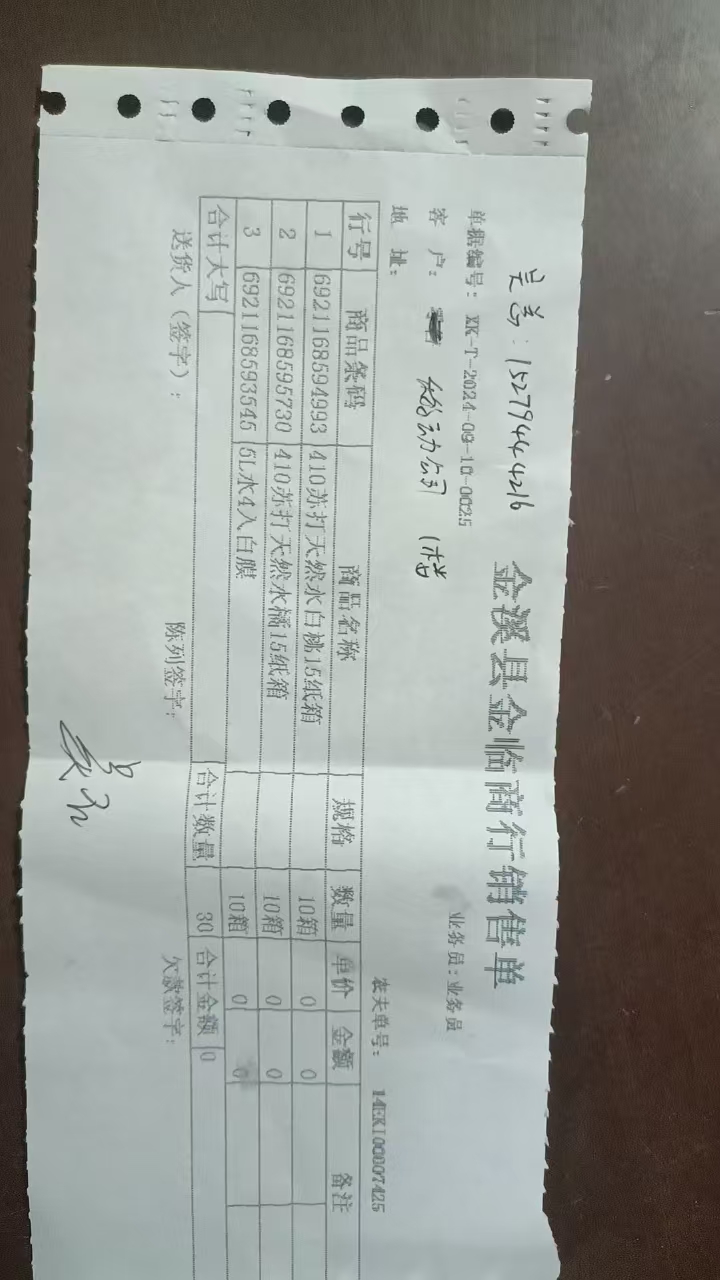 15279444216
金溪县金临商行销售单
单据编号: XK-T-2024-09-10-0025
业务员:业务员
客 户: 公司 1楼
地 址:
农夫单号: 14EKI00007425
行号 商品条码 商品名称 规格 数量 单价 金额 备注
1 6921168594993 410苏打天然水白桃15纸箱 10箱 0 0
2 6921168595730 410苏打天然水橘15纸箱 10箱 0 0
3 6921168593545 5L水4入白膜 10箱 0 0
合计大写 合计数量 30 合计金额 0
送货人(签字): 陈列签字: 欠款签字: